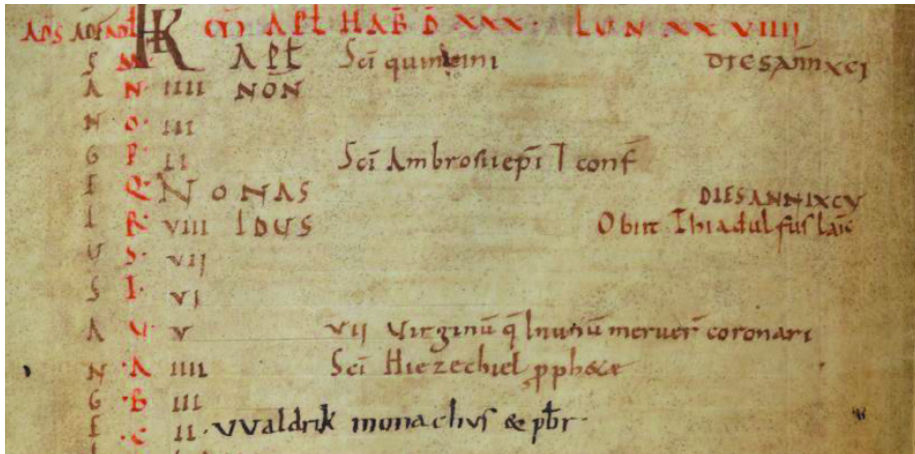 K APL HAB D XXX · LUN XX VIIII
S M APL Sci quintini DIES ANNI XCI
A N · IIII NON
N O · III
G P · II Sci Ambrosii epi ⁊ conf
E Q · NONAS DIES ANNI XCV
R · VIII IDUS Obiit Thiadulfus laic
U S · VII
S VI
A U · V VII Virginu q in unu meruer coronari
N · A IIII Sci Hiezechiel pphete
G · B III
E · C II · VValdrik monachus & pbr ·